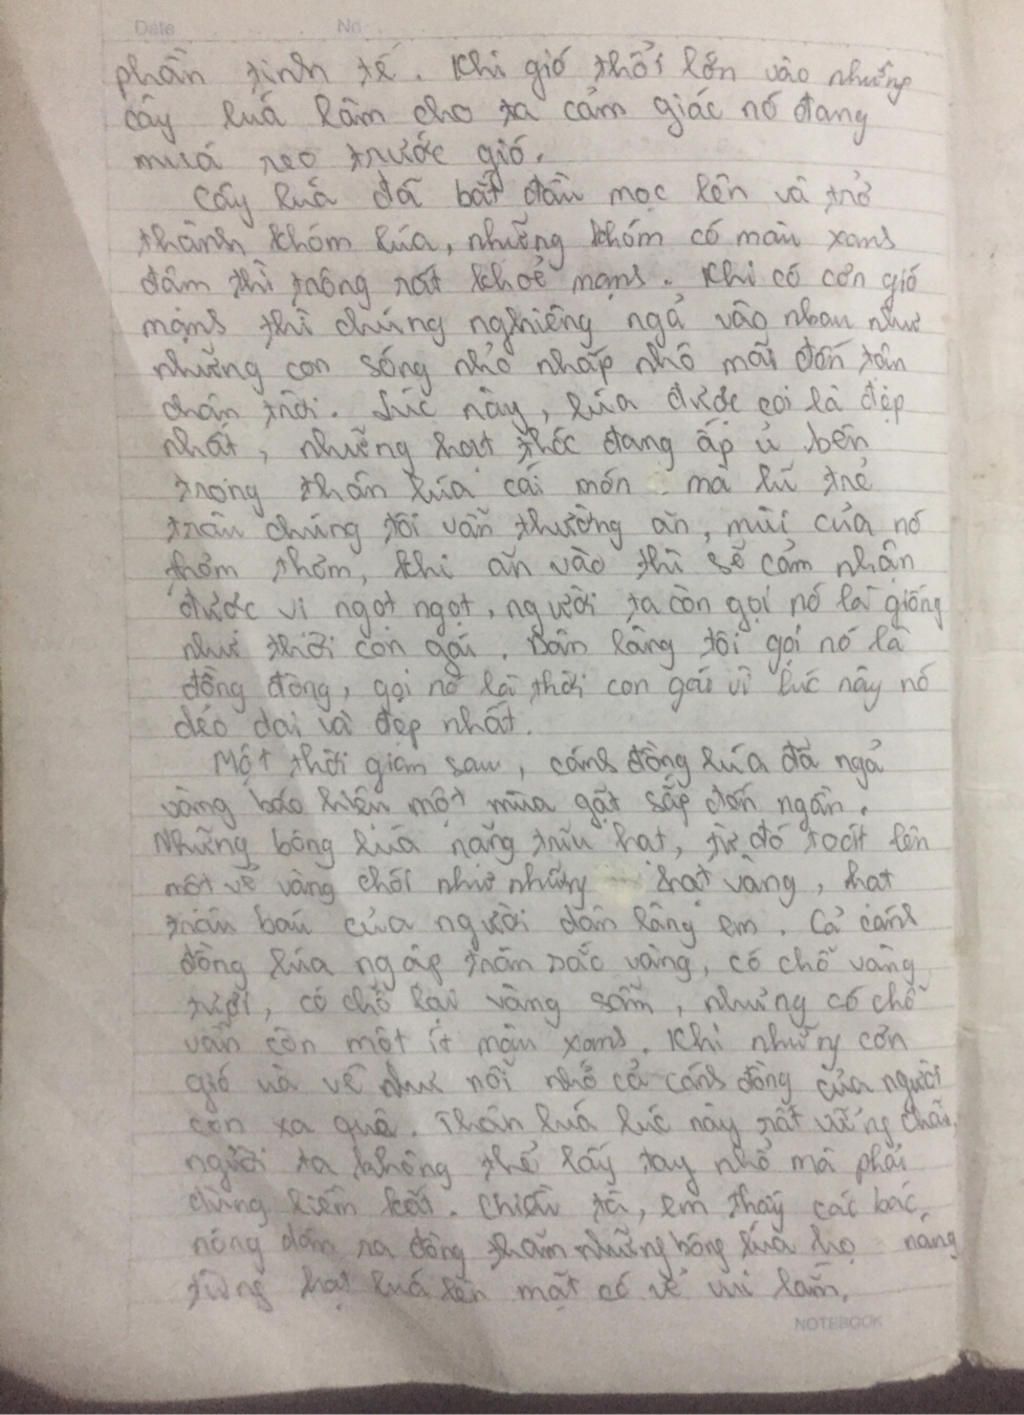 Date No
phần tinh tế. Khi gió thổi lớn vào những
cây luá làm cho ta cảm giác nó đang
muá reo trước gió.
Cây luá đã bắt đầu mọc lên và trở
thành khóm lúa, những khóm có màu xanh
đậm thì trông rất khoẻ mạnh. Khi có cơn gió
mạnh thì chúng nghiêng ngả vào nhau như
những con sóng nhỏ nhấp nhô mãi đến tận
chân trời. Lúc này, lúa được coi là đẹp
nhất, những hạt thóc đang ấp ủ bên
trong thân lúa cái món mà lũ trẻ
trâu chúng tôi vẫn thường ăn, mùi của nó
thơm thơm, khi ăn vào thì sẽ cảm nhận
được vị ngọt ngọt, người ta còn gọi nó là giống
như thời con gái. Dân làng tôi gọi nó là
đồng đòng, gọi nó là thời con gái vì lúc này nó
dẻo dai và đẹp nhất.
Một thời gian sau, cánh đồng lúa đã ngả
vàng báo hiệu một mùa gặt sắp đến ngần.
Những bông luá nặng trĩu hạt, từ đó toát lên
một vẻ vàng chói như những hạt vàng, hạt
trân báu của người dân làng em. Cả cánh
đồng lúa ngập tràn sắc vàng, có chỗ vàng
tươi, có chỗ lại vàng sẫm, nhưng có chỗ
vẫn còn một ít màu xanh. Khi những cơn
gió ùa về như nỗi nhớ cả cánh đồng của người
con xa quê. Thân luá lúc này rất vững chắc,
người ta không thể lấy tay nhổ mà phải
dùng liềm cắt. Chiều tà, em thấy các bác
nông dân ra đồng thăm những bông lúa họ nâng
từng hạt luá lên mặt có vẻ vui lắm.
NOTEBOOK